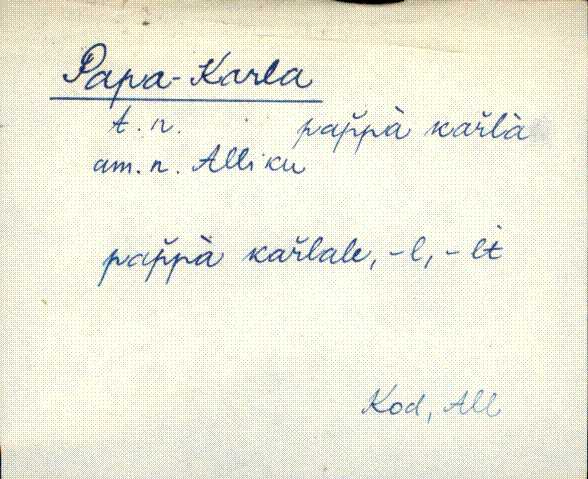 Papa-Karla
t. n. pap̌pà kařlà
am. n. Alliku
pap̌pà kařlale, -l, - lt
Kod, All